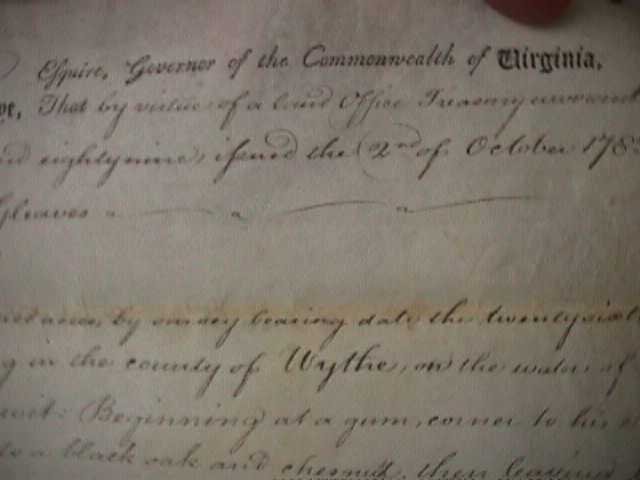 Esquire, Governor of the Commonwealth of Virginia,
That by virtue of a Land Office Treasury warrant
eightynine, issued the 2nd of October 178
Gleaves
by survey bearing date the twentysixth
in the county of Wythe, on the waters of
wit: Beginning at a gum, corner to his
to a black oak and chesnut, then leaving